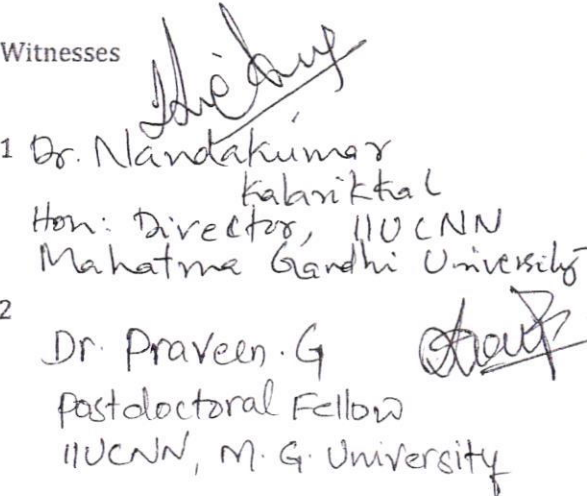 Witnesses
1 Dr. Nandakumar
Kalarikkal
Hon: Director, IIUCNN
Mahatma Gandhi University
2
Dr. Praveen. G
Postdoctoral Fellow
IIUCNN, M. G. University